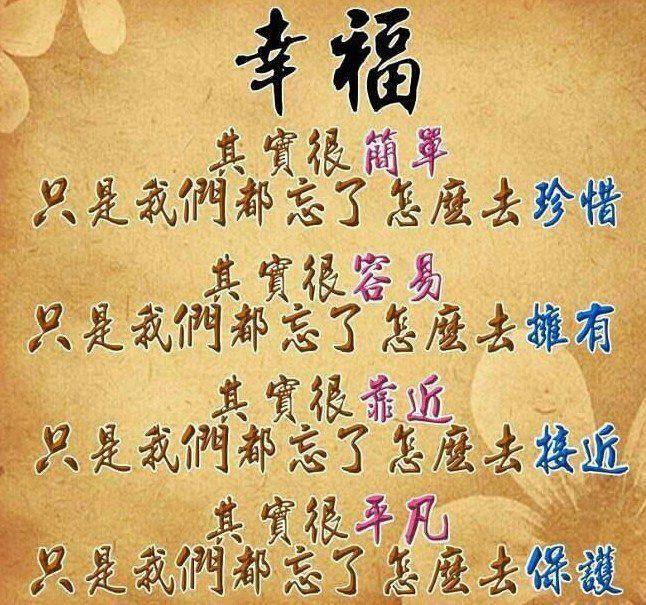 幸福
其實很簡單
只是我們都忘了怎麼去珍惜
其實很容易
只是我們都忘了怎麼去擁有
其實很靠近
只是我們都忘了怎麼去接近
其實很平凡
只是我們都忘了怎麼去保護